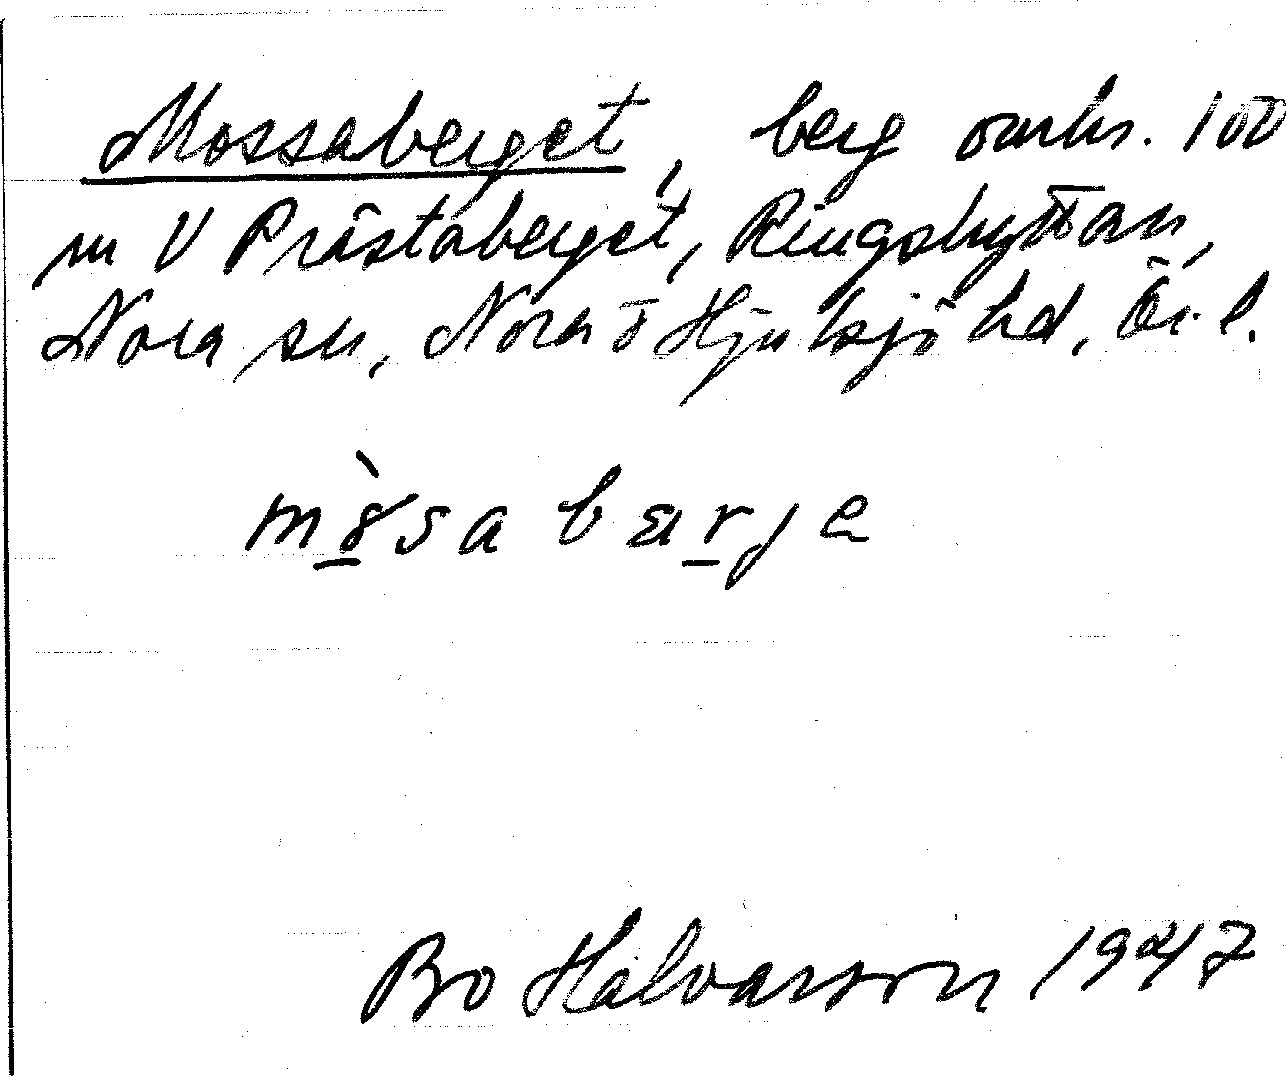 Mossaberget, berg omkr. 100
m V Prästaberget, Ringshyttan,
Nora sn, Nora o Hjulsjö hd, Ör. l.
Bo Halvarson 1947